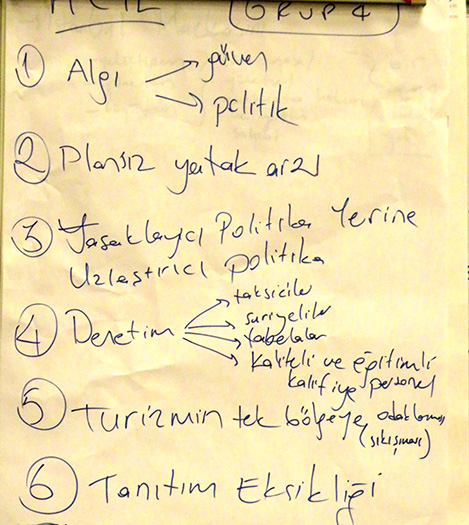 ACİL
GRUP 4
① Algı → güven
→ politik
② Plansız yatak arzı
③ Yasaklayıcı Politika Yerine
Uzlaştırıcı politika
④ Denetim → taksiciler
→ suriyeliler
→ tabelalar
→ kaliteli ve eğitimli
kalifiye personel
⑤ Turizmin tek bölgeye odaklanması
(sıkışması)
⑥ Tanıtım Eksikliği